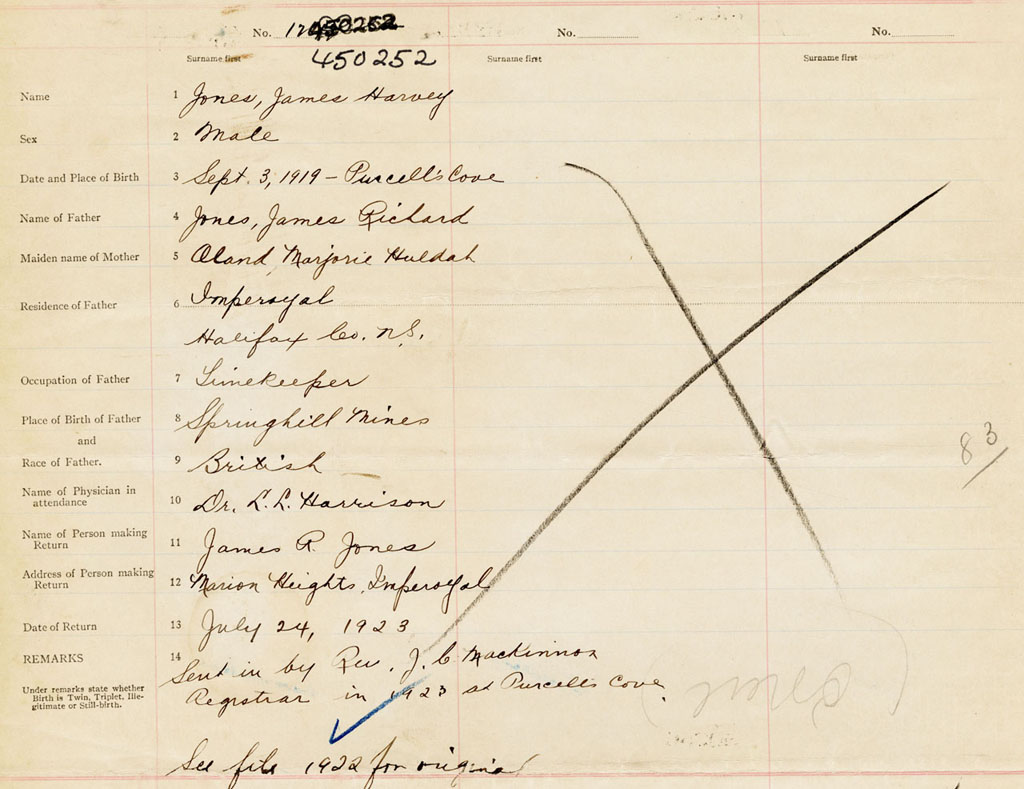 No. No. No.
450252
Surname first Surname first Surname first
Name 1 Jones, James Harvey
Sex 2 Male
Date and Place of Birth 3 Sept. 3, 1919 – Purcell's Cove
Name of Father 4 Jones, James Richard
Maiden name of Mother 5 Oland Marjorie Huldah
Residence of Father 6 Imperoyal
Halifax Co. N.S.
Occupation of Father 7 Timekeeper
Place of Birth of Father 8 Springhill Mines
and
Race of Father. 9 British
83
Name of Physician in
attendance 10 Dr. L. L. Harrison
Name of Person making
Return 11 James R. Jones
Address of Person making
Return 12 Marion Heights, Imperoyal
Date of Return 13 July 24, 1923
REMARKS 14 Sent in by Rev. J. C MacKinnon
Registrar in 1923 at Purcells Cove
Under remarks state whether
Birth is Twin, Triplet, Ille-
gitimate or Still-birth.
See file 1922 for original